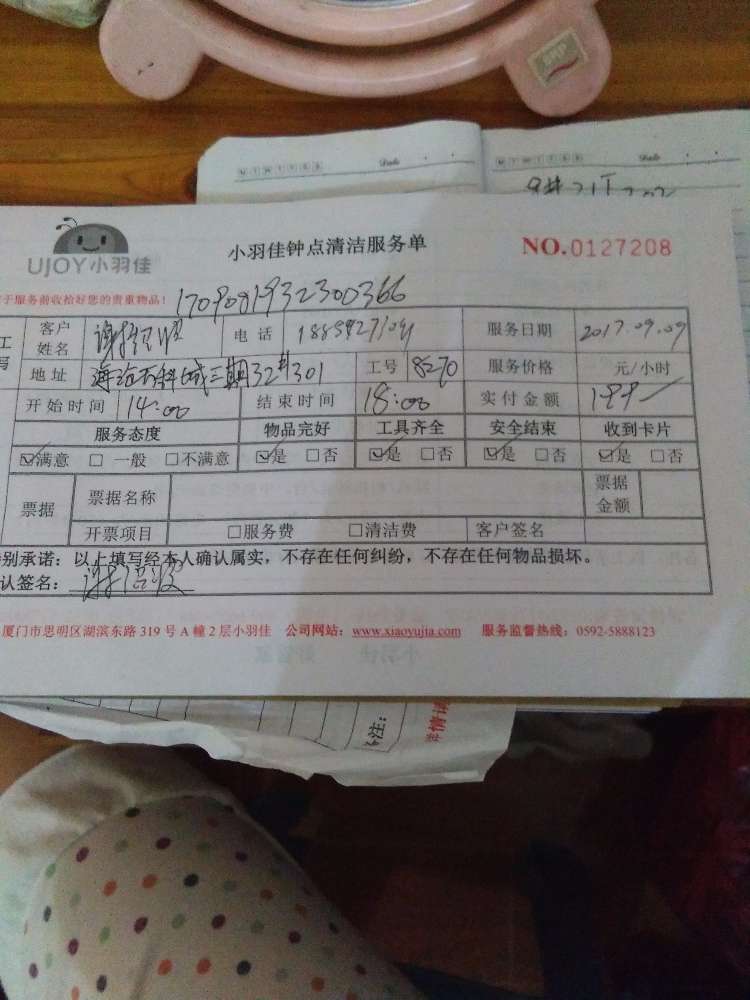 M T W T F S S Date
M T W T F S S Date
UJOY小羽佳 小羽佳钟点清洁服务单 NO.0127208
于服务前收拾好您的贵重物品! 1709081932300366
客户姓名 谢 电话 服务日期 2017.09.09
地址 海沧万科城三期32#301 工号 8270 服务价格 元/小时
开始时间 14:00 结束时间 18:00 实付金额 199
服务态度 物品完好 工具齐全 安全结束 收到卡片
☑满意 □一般 □不满意 ☑是 □否 ☑是 □否 ☑是 □否 ☑是 □否
票据 票据名称 票据金额
开票项目 □服务费 □清洁费 客户签名
别承诺:以上填写经本人确认属实,不存在任何纠纷,不存在任何物品损坏。
认签名: 谢
厦门市思明区湖滨东路 319 号 A 幢 2 层小羽佳 公司网站:www.xiaoyujia.com 服务监督热线:0592-5888123
注: